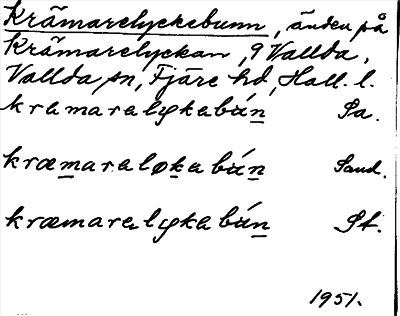 Krämarelyckebunn, änden på
Krämarelyckan, 9 Vallda,
Vallda sn, Fjäre hd, Hall. l.
kramaralykabún Pa.
kræmaraløkabún Sand.
kræmaralykabún St.
1951.